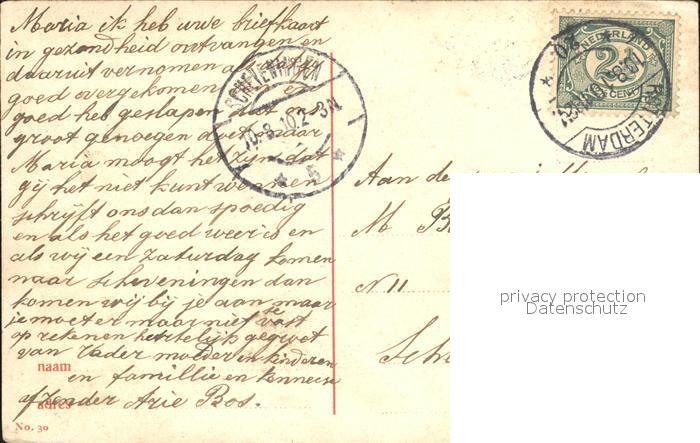 Maria ik heb uwe briefkaart
in gezondheid ontvangen en
daaruit vernomen
goed overgekomen en
goed heb geslapen dat
groot genoegen doet maar
Maria moogt het zijn dat
gij het niet kunt wennen
schrijft ons dan spoedig
en als het goed weer is en
als wij een zaturdag komen
naar scheveningen dan
komen wij bij je aan maar
je moet er maar niet te vast
op rekenen hertelijk gegroet
van Vader moeder en kinderen
naam
en famillie en kennesen
adres
afzender Arie Bos.
No. 30
SCHEVENINGEN
10.8.10.2-3N
5
NEDERLAND
2½
CENT
ROTTERDAM
Aan de
M
N 11
Sch
privacy protection
Datenschutz